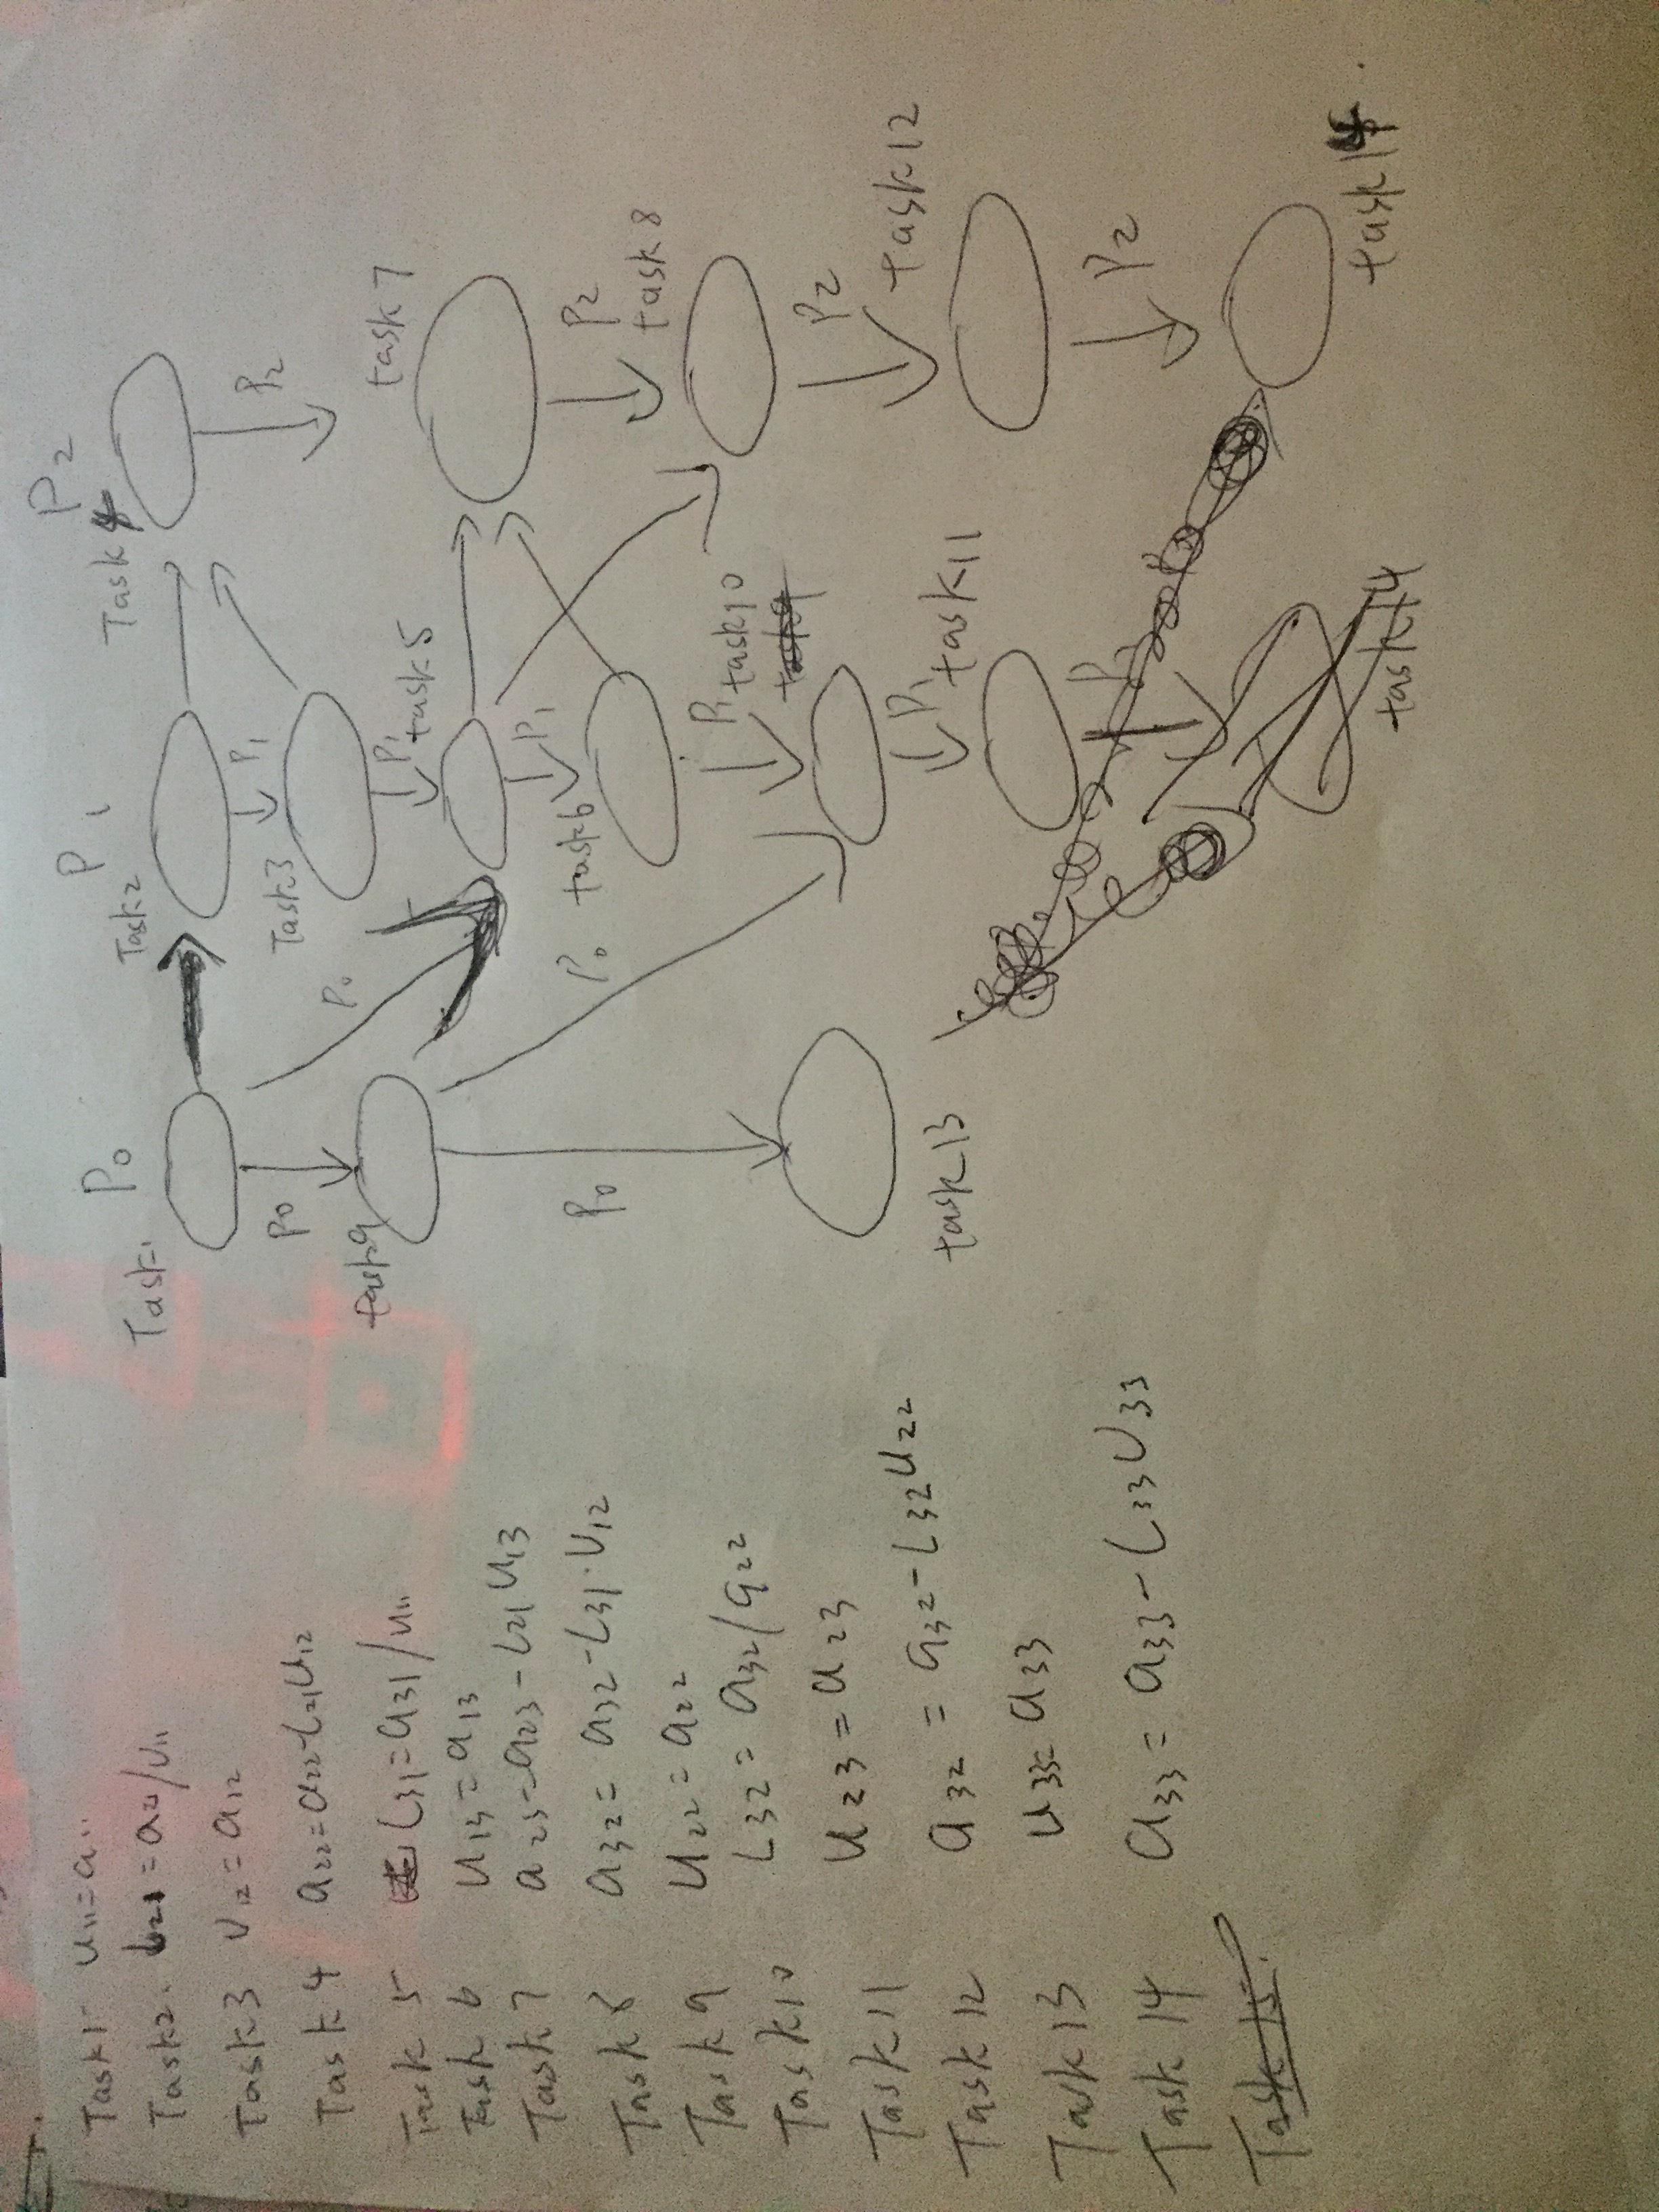 Task1 u11=a11
Task2. L21=a21/U11
Task3 U12=a12
Task 4 a22=a22-L21U12
Task 5 L31=a31/u11
Task 6 U13=a13
Task 7 a23=a23-L21U13
Task 8 a32=a32-L31·U12
Task 9 U22=a22
Task10 L32=a32/a22
Task11 U23=a23
Task 12 a32=a32-L32U22
Task 13 U33=a33
Task 14 a33=a33-L33U33
Task 15.
P0 P1 P2
Task1 Task2 Task4
P0 P1 P2
Task3
P0
task9 task7
P1 task5
P1
P0 P0 task6 P2
task8
P1 task10
task9
P2
P1 task12
task13 task11
P1 P2
task14 task14.